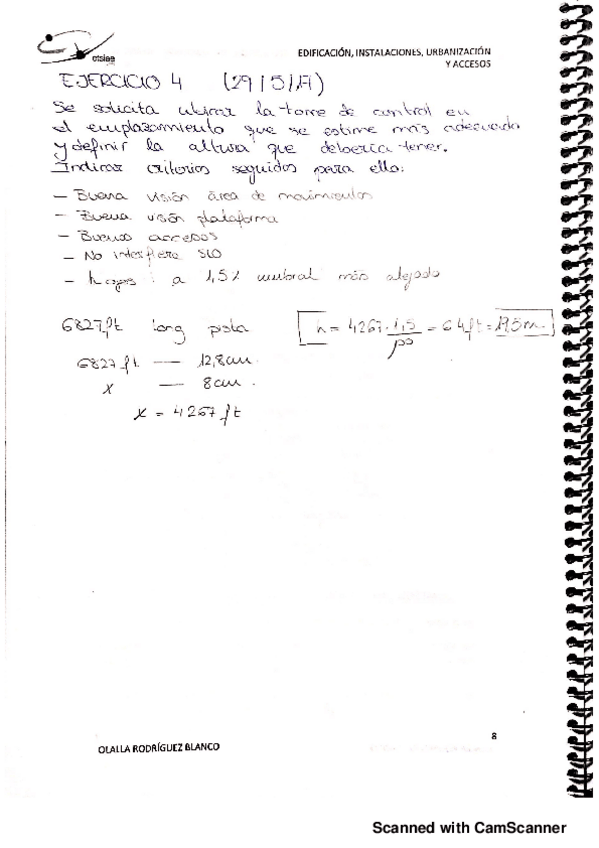 otalee
EDIFICACIÓN, INSTALACIONES, URBANIZACIÓN
Y ACCESOS
EJERCICIO 4 (29/5/17)
Se solicita ubicar la torre de control en
el emplazamiento que se estime más adecuado
y definir la altura que debería tener.
Indicar criterios seguidos para ello:
- Buena visión área de movimientos
- Buena visión plataforma
- Buenos accesos
- No interfiere SLO
- h ojos : a 1,5% umbral más alejado
6827 ft long pista
h = 4267 · 1,5 / 100 = 64 ft = 19,5 m.
6827 ft — 12,8 cm.
x — 8 cm.
x = 4267 ft
8
OLALLA RODRÍGUEZ BLANCO
Scanned with CamScanner